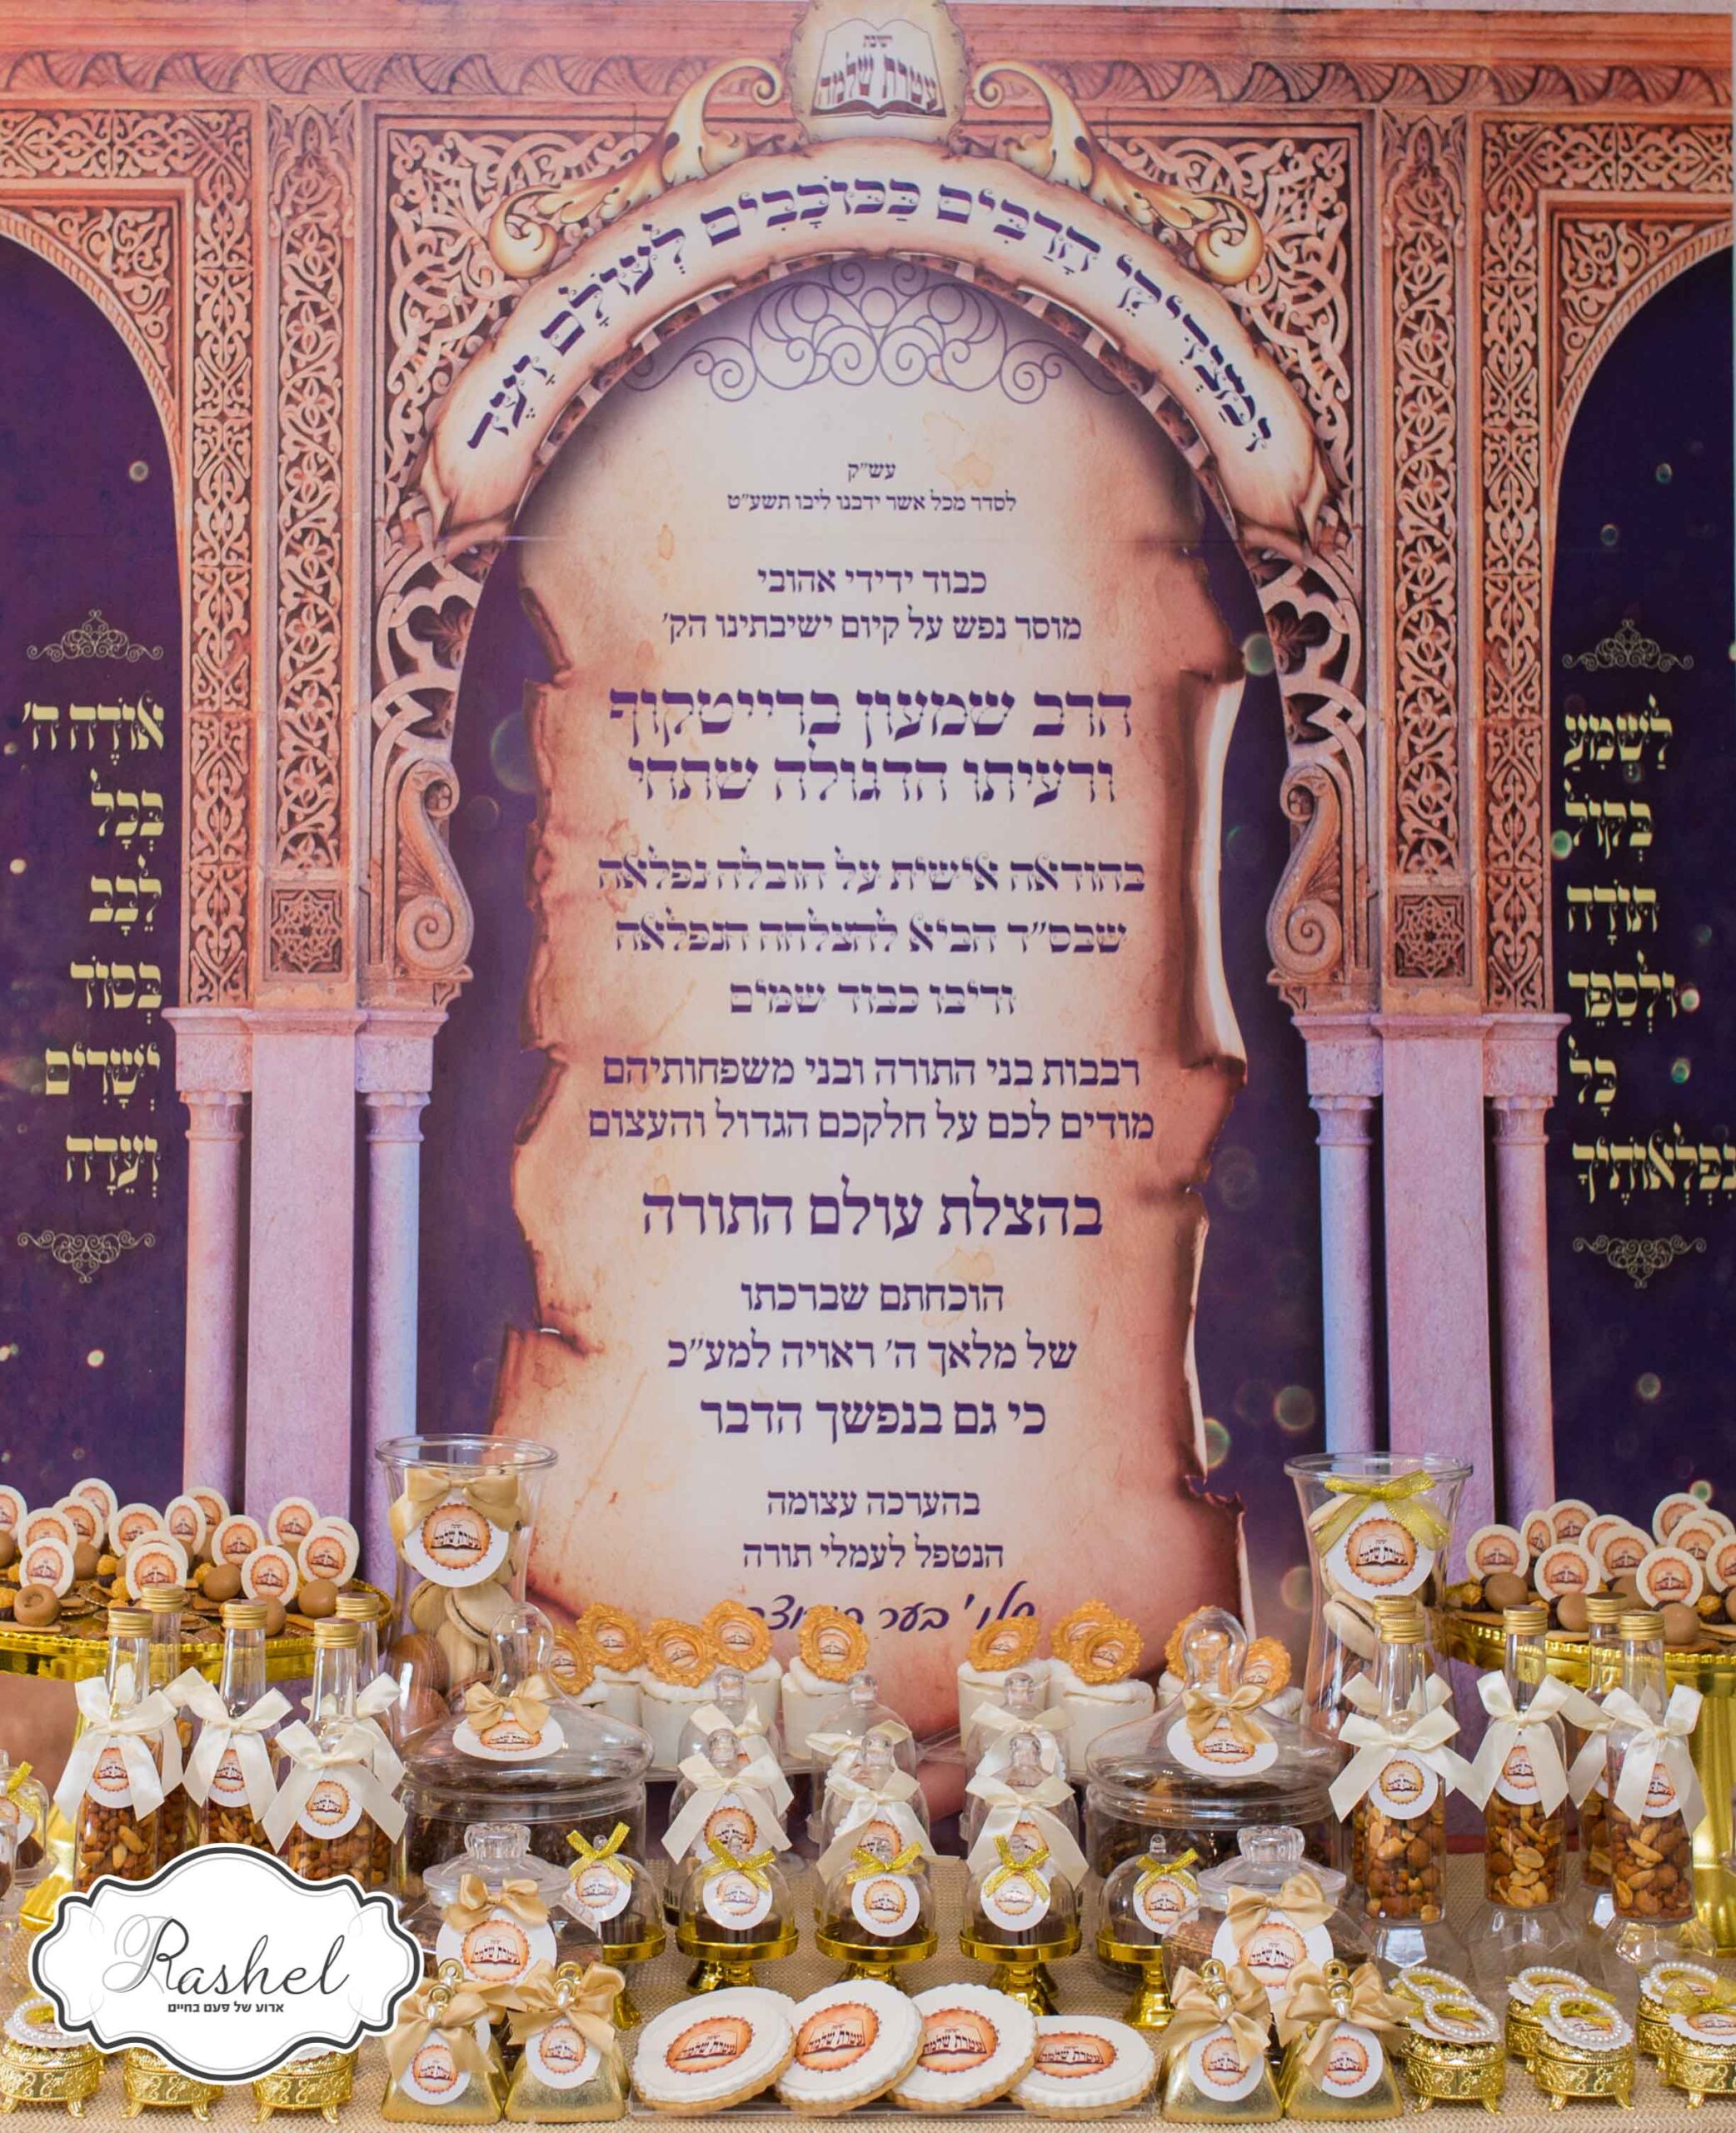 ישיבת
עטרת שלמה
וּמַצְדִּיקֵי הָרַבִּים כַּכּוֹכָבִים לְעוֹלָם וָעֶד
עש"ק
לסדר מכל אשר ידבנו ליבו תשע"ט
כבוד ידידי אהובי
מוסר נפש על קיום ישיבתינו הק'
הרב שמעון ברייטקוף
ורעיתו הדגולה שתחי
בהודאה אישית על הובלה נפלאה
שבס"ד הביא להצלחה הנפלאה
ודיבו כבוד שמים
רבבות בני התורה ובני משפחותיהם
מודים לכם על חלקכם הגדול והעצום
בהצלת עולם התורה
הוכחתם שברכתו
של מלאך ה' ראויה למע"כ
כי גם בנפשך הדבר
בהערכה עצומה
הנטפל לעמלי תורה
בער
לַשְׁמִעַ
בְּקוֹל
תּוֹדָה
וּלְסַפֵּר
כָּל
נִפְלְאוֹתֶיךָ
אוֹדֶה ה'
בְּכָל
לֵבָב
בְּסוֹד
יְשָׁרִים
וְעֵדָה
עטרת שלמה
עטרת שלמה
עטרת שלמה
עטרת שלמה
ישיבת
עטרת שלמה
עטרת שלמה
עטרת שלמה
עטרת שלמה
Rashel
ארוע של פעם בחיים